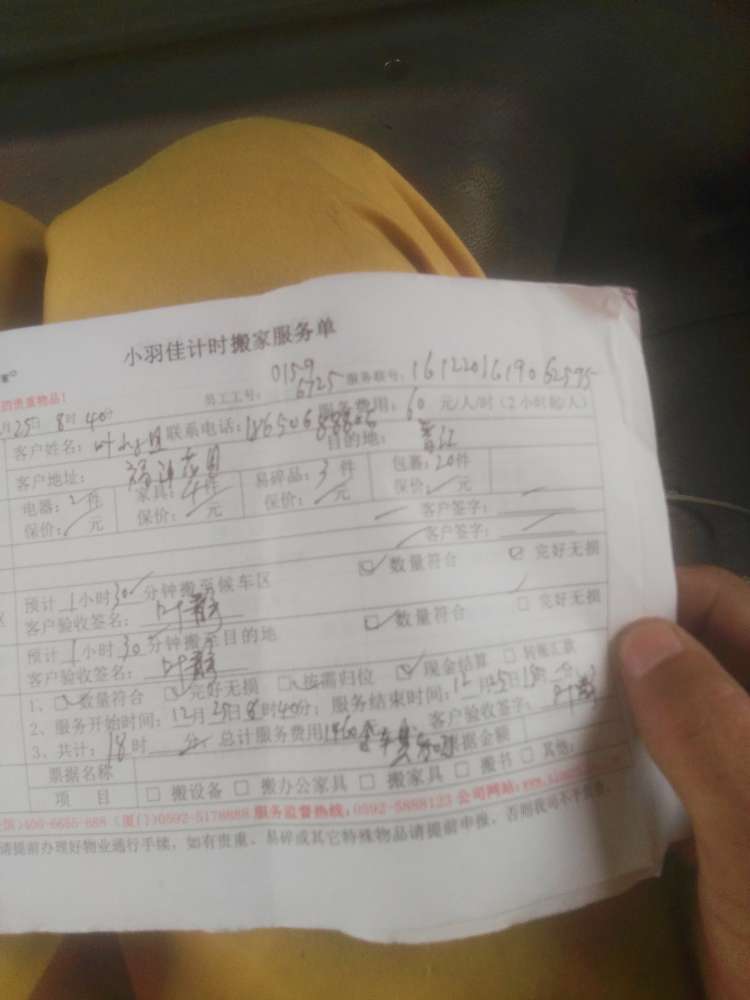 小羽佳计时搬家服务单
的贵重物品！
员工工号：0159 6725 服务联号：1612201619062595
月25日 8时40分
客户姓名： 联系电话： 服务费用：60 元/人/时（2小时起/人）
客户地址： 目的地：晋江
电器：2件 家具：4件 易碎品：3件 包裹：20件
保价： 元 保价： 元 保价： 元 保价： 元
客户签字：
客户签字：
预计1小时30分钟搬至候车区 数量符合 完好无损
客户验收签名：叶静
预计1小时30分钟搬至目的地 数量符合 完好无损
客户验收签名：叶静
1、 数量符合 完好无损 按需归位 现金结算 转账汇款
2、服务开始时间：12月25日8时40分；服务结束时间：12月25日
3、共计：18时 分 总计服务费用1460 客户验收签字：叶静
票据名称 票据金额
项 目 搬设备 搬办公家具 搬家具 搬书 其他：
400-6655-688（厦门）0592-5178888 服务监督热线：0592-5888123 公司网站：www.
请提前办理好物业通行手续，如有贵重、易碎或其它特殊物品请提前申报，否则我司不予负责。